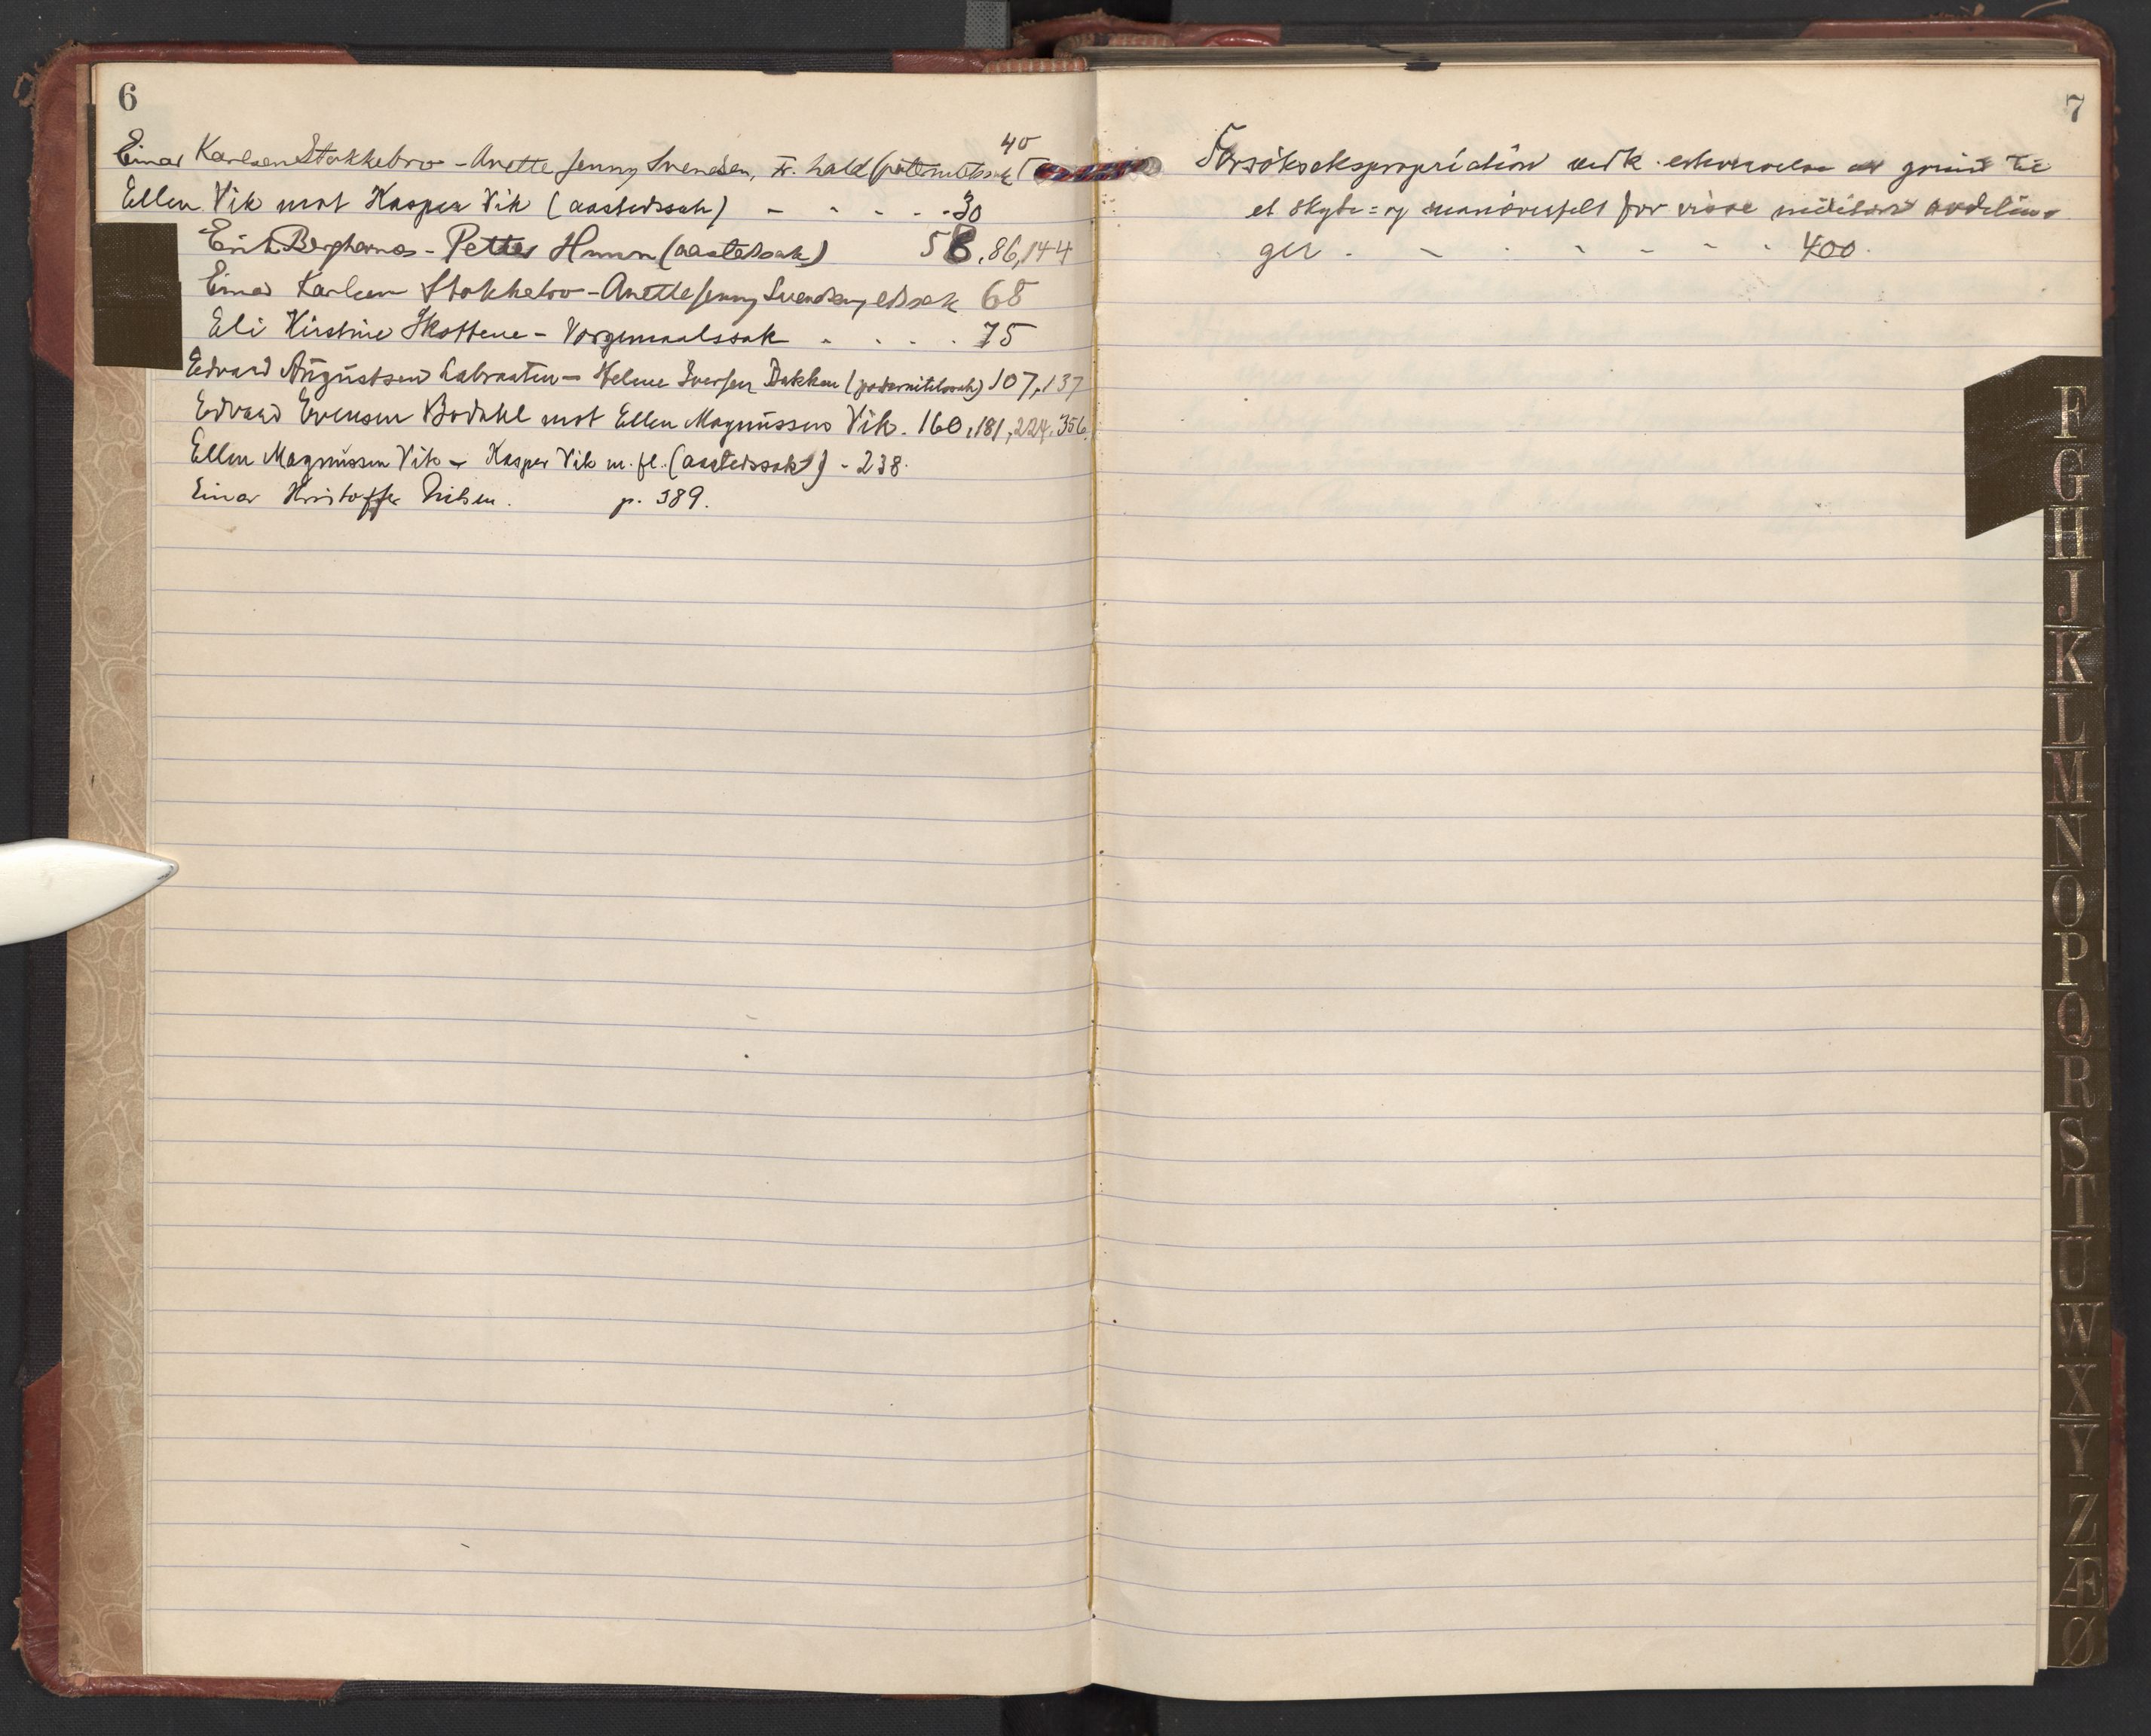 6
40
Einar Karlsen Stokkebro - Anette Jenny Svendsen, f. Hald (paternitetssak)
Ellen Vik mot Kasper Vik (aastedssak) - - - - - 30
Erik Berghernes - Petter Hunn (aastedssak) 58, 86, 144
Einar Karlsen Stokkebro - Anette Jenny Svendsen, edssak 68
Eli Kirstine Skottene - Vergemaalssak . . . . 75
Edvard Augustsen Labraaten - Helene Iversen Bakken (paternitetssak) 107, 137
Edvard Evensen Bodahl mot Ellen Magnussen Vik. 160, 181, 224, 356.
Ellen Magnussen Vik - Kasper Vik m. fl. (aastedssak) - 238.
Einar Kristoffer Nilsen. p. 389.
7
Forsøksekspropriation vedk. erhvervelse av grund til
et skyte= og manøverfelt for visse militære avdelin=
ger . - . - - - - . 400.
F
G
H
J
K
L
M
N
O
P
Q
R
S
T
U
W
X
Y
Z
Æ
Ø